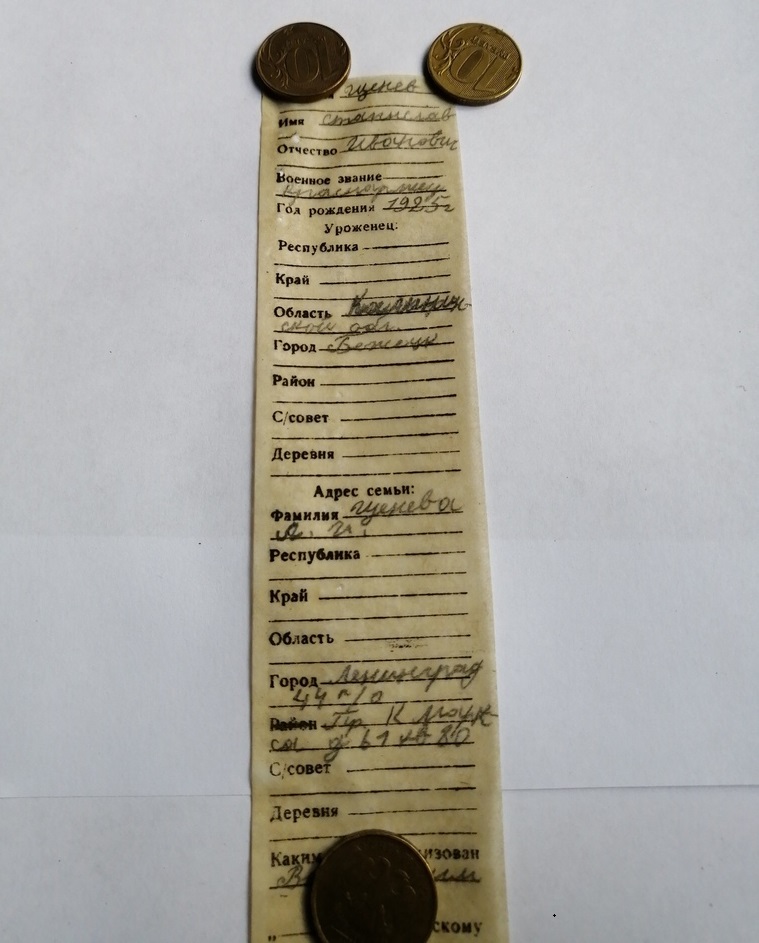 10
10
гценев
Имя Станислав
Отчество Иванович
Военное звание
красноармеец
Год рождения 1925г
Уроженец:
Республика
Край
Область Калинин-
ской обл.
Город Бежецк
Район
С/совет
Деревня
Адрес семьи:
Фамилия гценева
А. И.
Республика
Край
Область
Город Ленинград
44 п/о
Район Пр. К Марк
са д 61 кв 80
С/совет
Деревня
Каким изован
"
скому